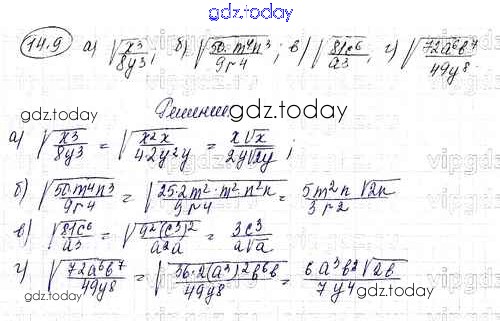 gdz.today
14.9 а) √(x³/8y³); б) √(50·m⁴n³/9r⁴); в) √(81c⁶/a³); г) √(72a⁶b⁷/49y⁸)
gdz.today
Решение gdz.today
а) √(x³/8y³) = √(x²x/42y²y) = x√x/2y√2y;
б) √(50m⁴n³/9r⁴) = √(25·2m²·m²n²n/9r⁴) = 5m²n√2n/3r²
в) √(81c⁶/a³) = √(9²(c³)²/a²a) = 9c³/a√a
г) √(72a⁶b⁷/49y⁸) = √(36·2(a³)²b⁶b/49y⁸) = 6a³b³√2b/7y⁴
gdz.today
gdz.today